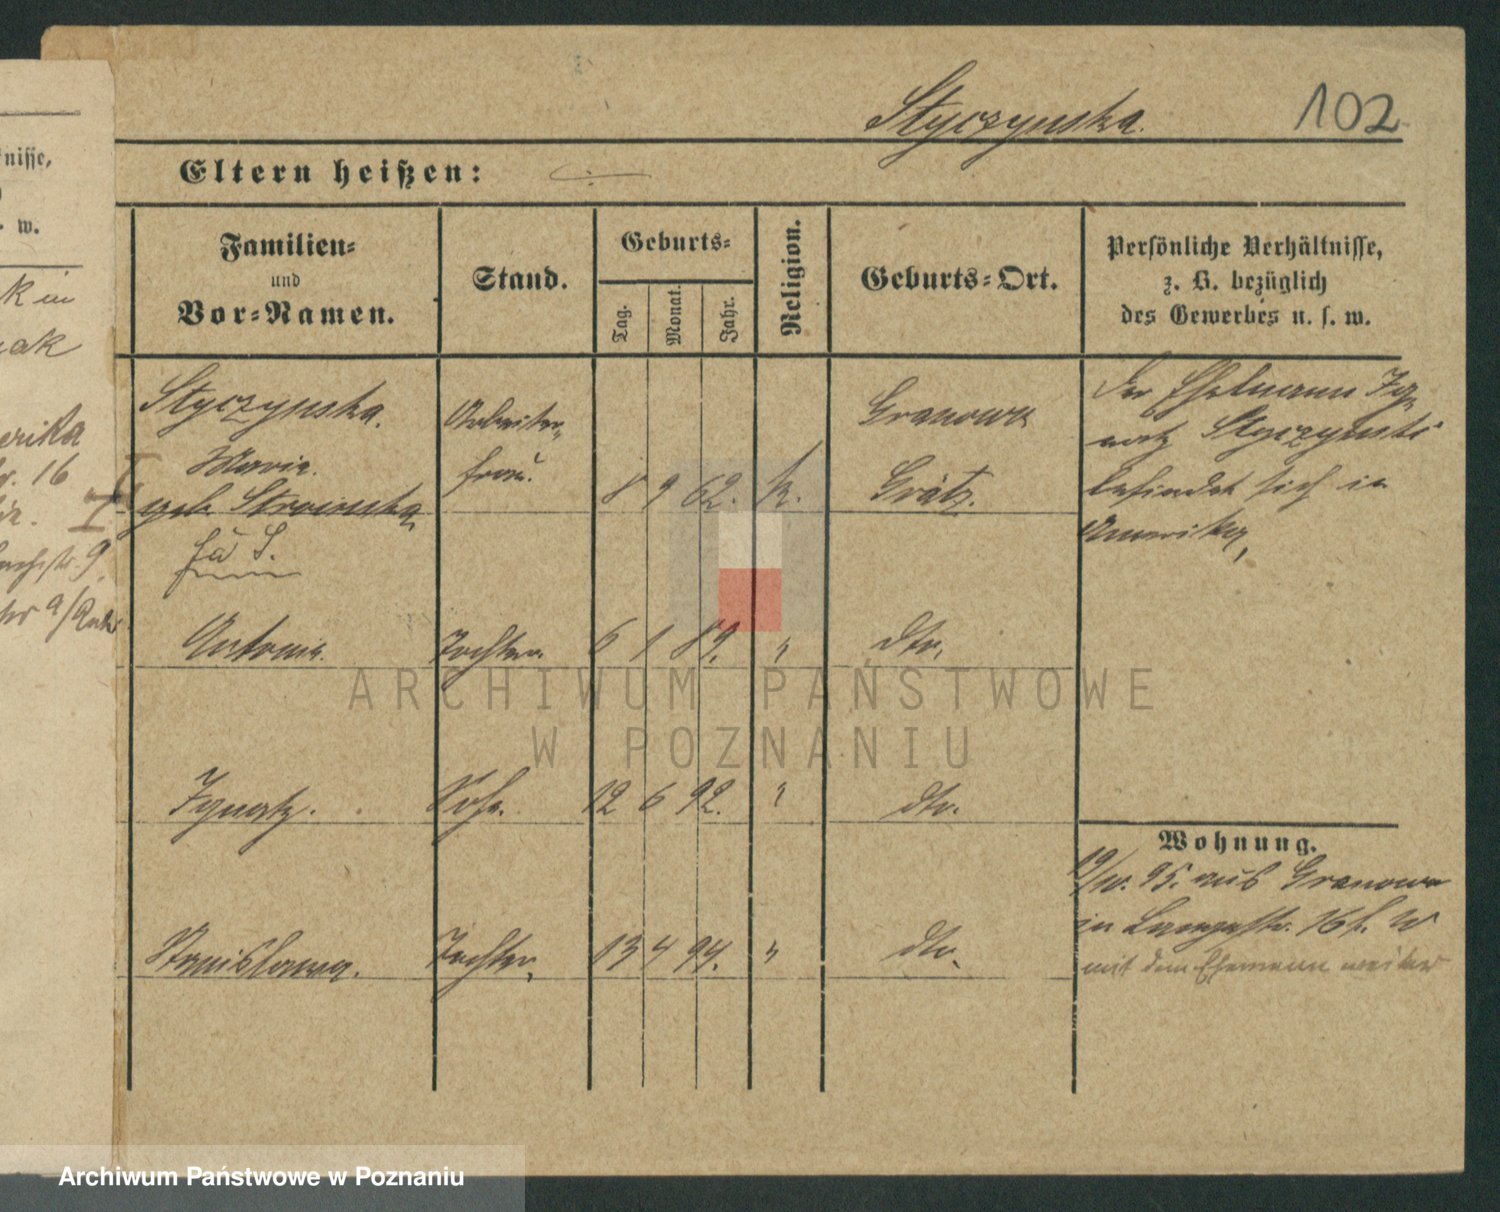 Styczynska.
102
Eltern heißen:
Familien=
und
Vor=Namen.
Stand.
Geburts=
Tag.
Monat.
Jahr.
Religion.
Geburts=Ort.
Persönliche Verhältnisse,
z. B. bezüglich
des Gewerbes u. s. w.
nisse,
. w.
k in
ak
erika
16
9
Styczynska.
Maria.
geb.
Arbeiter
frau.
8 9 62. k.
Granowo
Grätz.
Der Ehemann Ig
natz Styczynski
befindet sich in
Amerika,
Antonie. Tochter. 6 1 89. " dto.
Ignatz. Sohn. 12 6 92. " dto.
Stanislawa. Tochter, 13 4 94. " dto.
Wohnung.
95. aus Granowo
in Langestr. 16
mit dem Ehemann weiter
ARCHIWUM PAŃSTWOWE
W POZNANIU
Archiwum Państwowe w Poznaniu